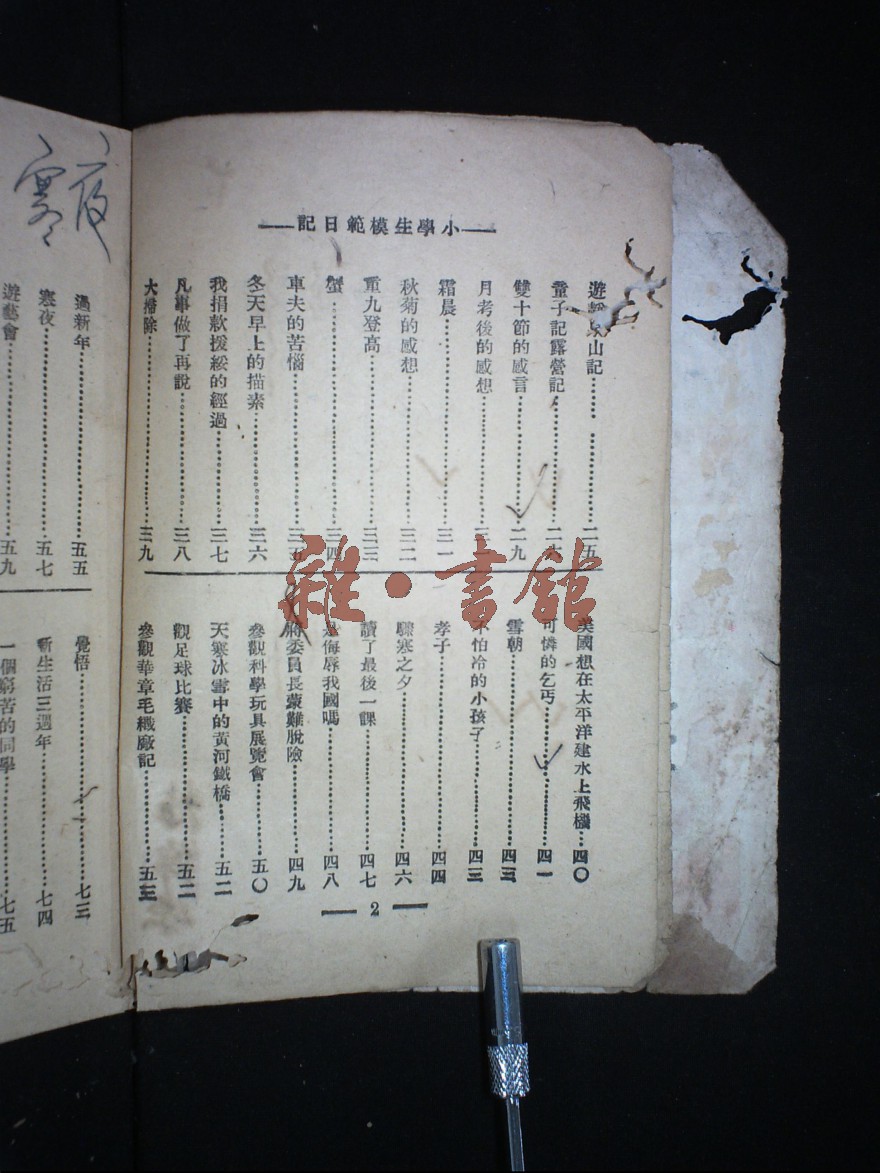 小學生模範日記
山記……二五
童子記露營記……二
雙十節的感言……二九
月考後的感想……三
霜晨……三一
秋菊的感想……三二
重九登高……三三
蟹……三四
車夫的苦惱……三五
冬天早上的描素……三六
我捐欵援綏的經過……三七
凡事做了再說……三八
大掃除……三九
美國想在太平洋建水上飛機…四〇
可憐的乞丐……四一
雪朝……四三
不怕冷的小孩子……四三
孝子……四四
驟寒之夕……四六
讀了最後一課……四七
侮辱我國嗎……四八
蔣委員長蒙難脫險……四九
參觀科學玩具展覽會……五〇
天寒冰雪中的黃河鐵橋……五二
觀足球比賽……五二
參觀華章毛織廠記……五三
2
寒夜
過新年……五五
寒夜……五七
遊藝會……五九
覺悟……七三
新生活三週年……七四
一個窮苦的同學……七五
雜·書館